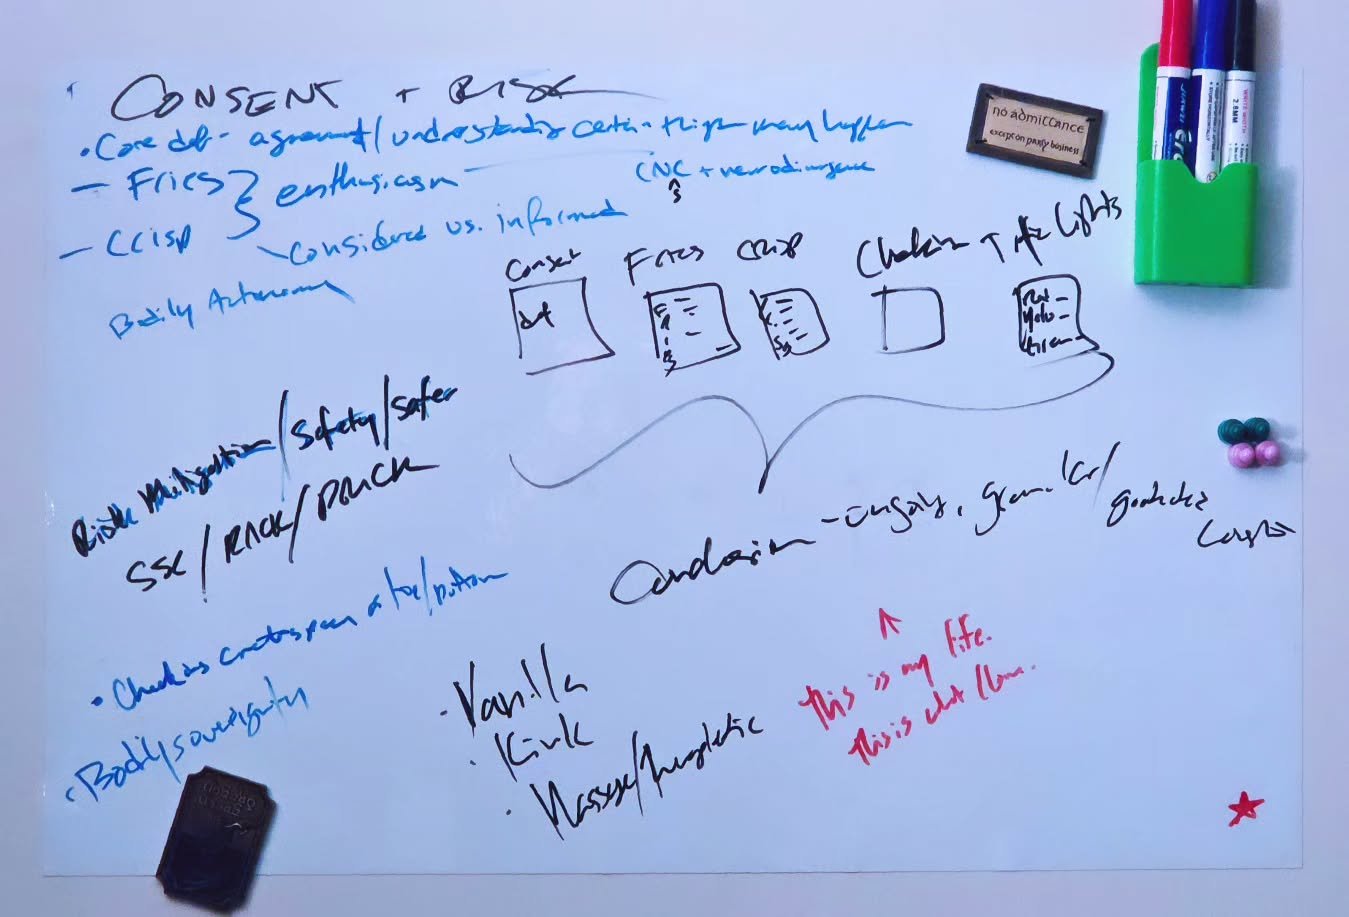 CONSENT + RISK
• Core def - agreement/understanding certain things may happen
- FRIES } enthusiasm
- CCRISP
Considered vs. informed
CNC + neurodivergence
Bodily Autonomy
no admittance
except on party business
Consent
def
FRIES
F
R
I
E
S
CRISP
Checkin
Traffic lights
Red -
Yellow -
Green -
Risk Mitigation/Safety/safer
SSC/RACK/PRICK
Conclusion - ongoing, granular/
• Check ins creates pause
• Bodily sovereignty
• Vanilla
• Kink
• Massage/therapeutic
↑
This is my life.
This is what I